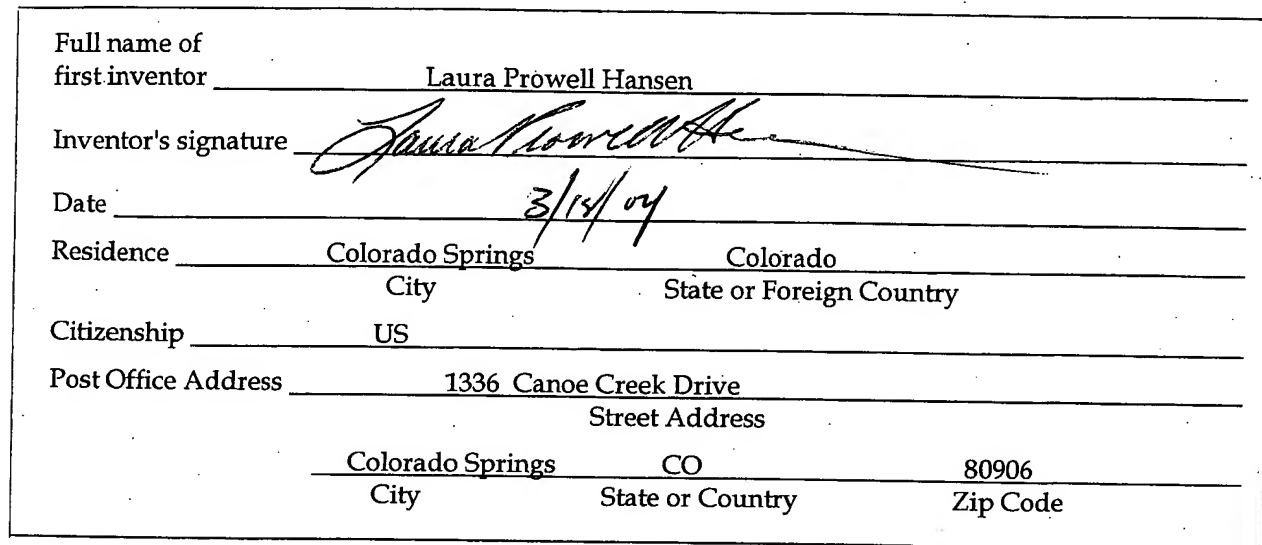 Full name of
first inventor Laura Prowell Hansen
Inventor's signature Laura Prowell
Date 3/18/04
Residence Colorado Springs Colorado
City State or Foreign Country
Citizenship US
Post Office Address 1336 Canoe Creek Drive
Street Address
Colorado Springs CO 80906
City State or Country Zip Code